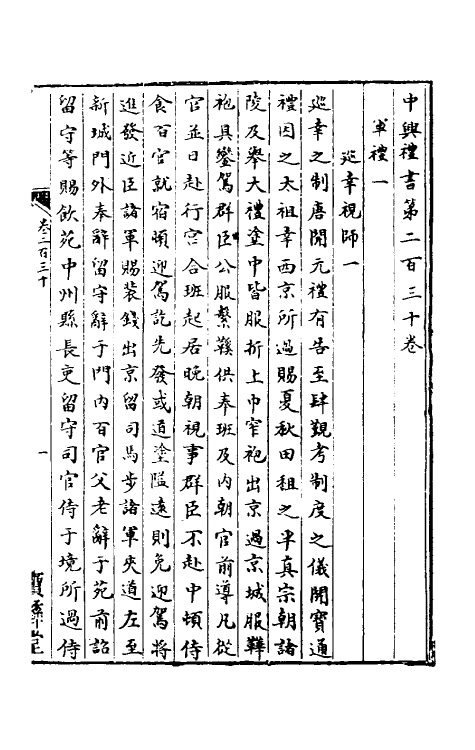 中興禮書第二百三十卷
軍禮一
廵幸視師一
廵幸之制唐開元禮有告至肆覲考制度之儀開寶通
禮因之太祖幸西京所過賜夏秋田租之半真宗朝諸
陵及舉大禮塗中皆服折上巾窄袍出京過京城服鞾
袍具鑾駕群臣公服繫鞵供奉班及内朝官前導凡從
官並日赴行宫合班起居晚朝視事群臣不赴中頓侍
食百官就宿頓迎駕訖先發或道塗隘遠則免迎駕將
進發近臣諸軍賜装錢出京留司馬步諸軍夾道左至
新城門外奉辭留守辭于門内百官父老辭于苑前詔
留守等賜飲苑中州縣長吏留守司官侍于境所過侍
卷二百三十
一